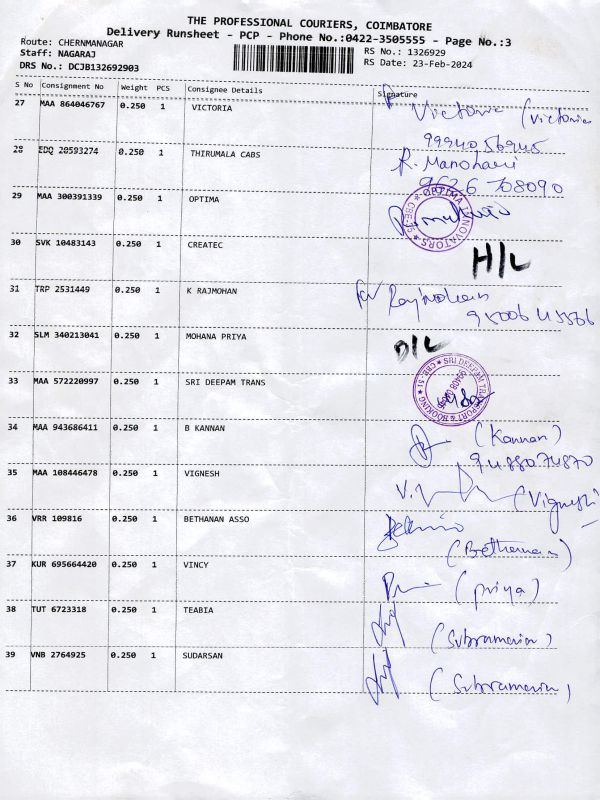 THE PROFESSIONAL COURIERS, COIMBATORE
Delivery Runsheet - PCP - Phone No.:0422-3505555 - Page No.:3
Route: CHERNMANAGAR
RS No.: 1326929
Staff: NAGARAJ
RS Date: 23-Feb-2024
DRS No.: DCJB132692903
S No Consignment No Weight PCS Consignee Details Signature
27 MAA 864046767 0.250 1 VICTORIA Victoria (Victoria
99940 56945
28 EDQ 20593274 0.250 1 THIRUMALA CABS R. Manohari
9626 708090
29 MAA 300391339 0.250 1 OPTIMA OPTIMA INNOVATORS
30 SVK 10483143 0.250 1 CREATEC H/L
31 TRP 2531449 0.250 1 K RAJMOHAN for Rajmohan
32 SLM 340213041 0.250 1 MOHANA PRIYA D/L
33 MAA 572220997 0.250 1 SRI DEEPAM TRANS SRI DEEPAM TRANSPORT BOOKING
34 MAA 943686411 0.250 1 B KANNAN (Kannan)
94880 74870
35 MAA 108446478 0.250 1 VIGNESH (Vignesh
36 VRR 109816 0.250 1 BETHANAN ASSO
(Bethanan)
37 KUR 695664420 0.250 1 VINCY (Priya)
38 TUT 6723318 0.250 1 TEABIA
(Subramanian)
39 VNB 2764925 0.250 1 SUDARSAN
(Subramanian)